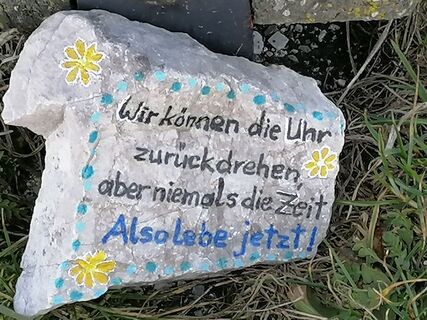 Wir können die Uhr
zurückdrehen,
aber niemals die Zeit
Also lebe jetzt!